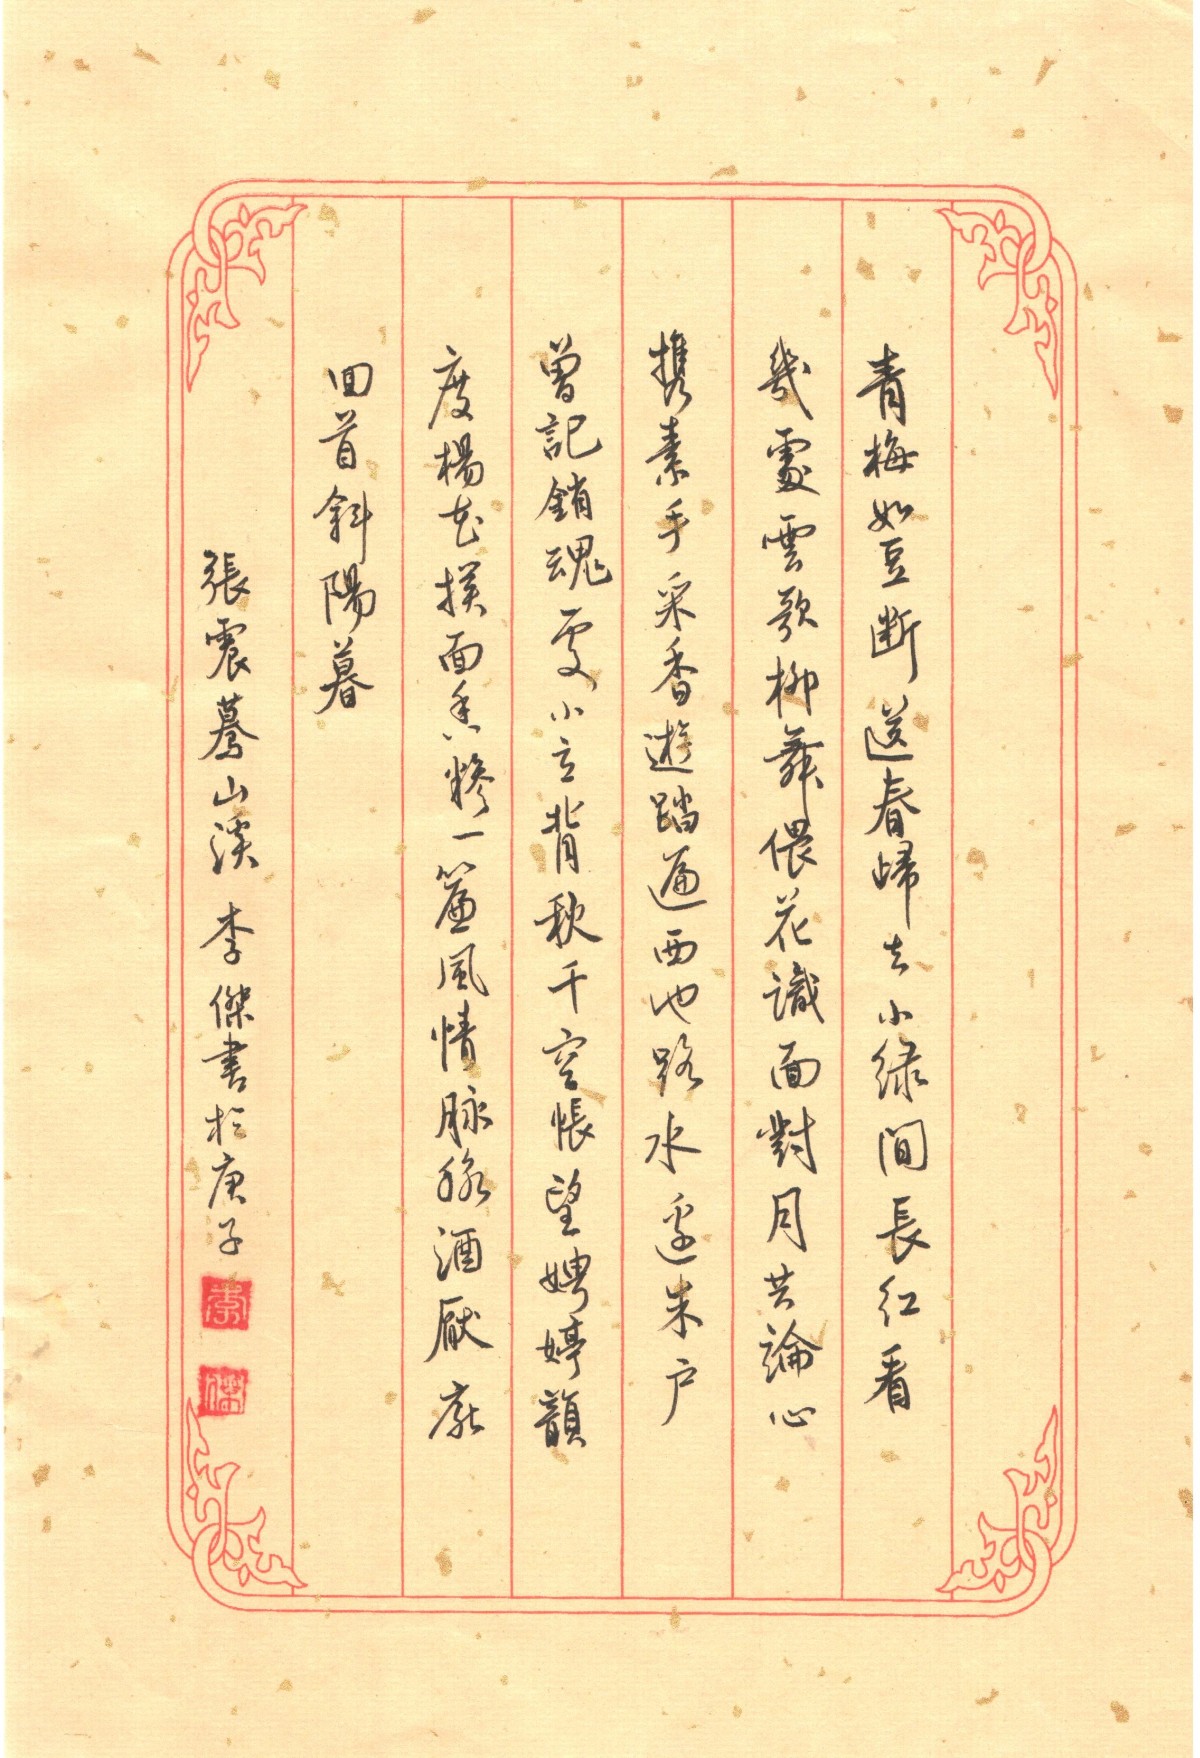 青梅如豆断送春歸去小緑間長紅看
幾處雲歌柳舞偎花識面對月共論心
携素手采香遊踏遍西池路水邊朱户
曾記銷魂處小立背秋千空悵望娉婷韻
度楊花撲面香糝一簾風情脉脉酒厭厭
回首斜陽暮
張震驀山溪 李傑書於庚子
李
傑